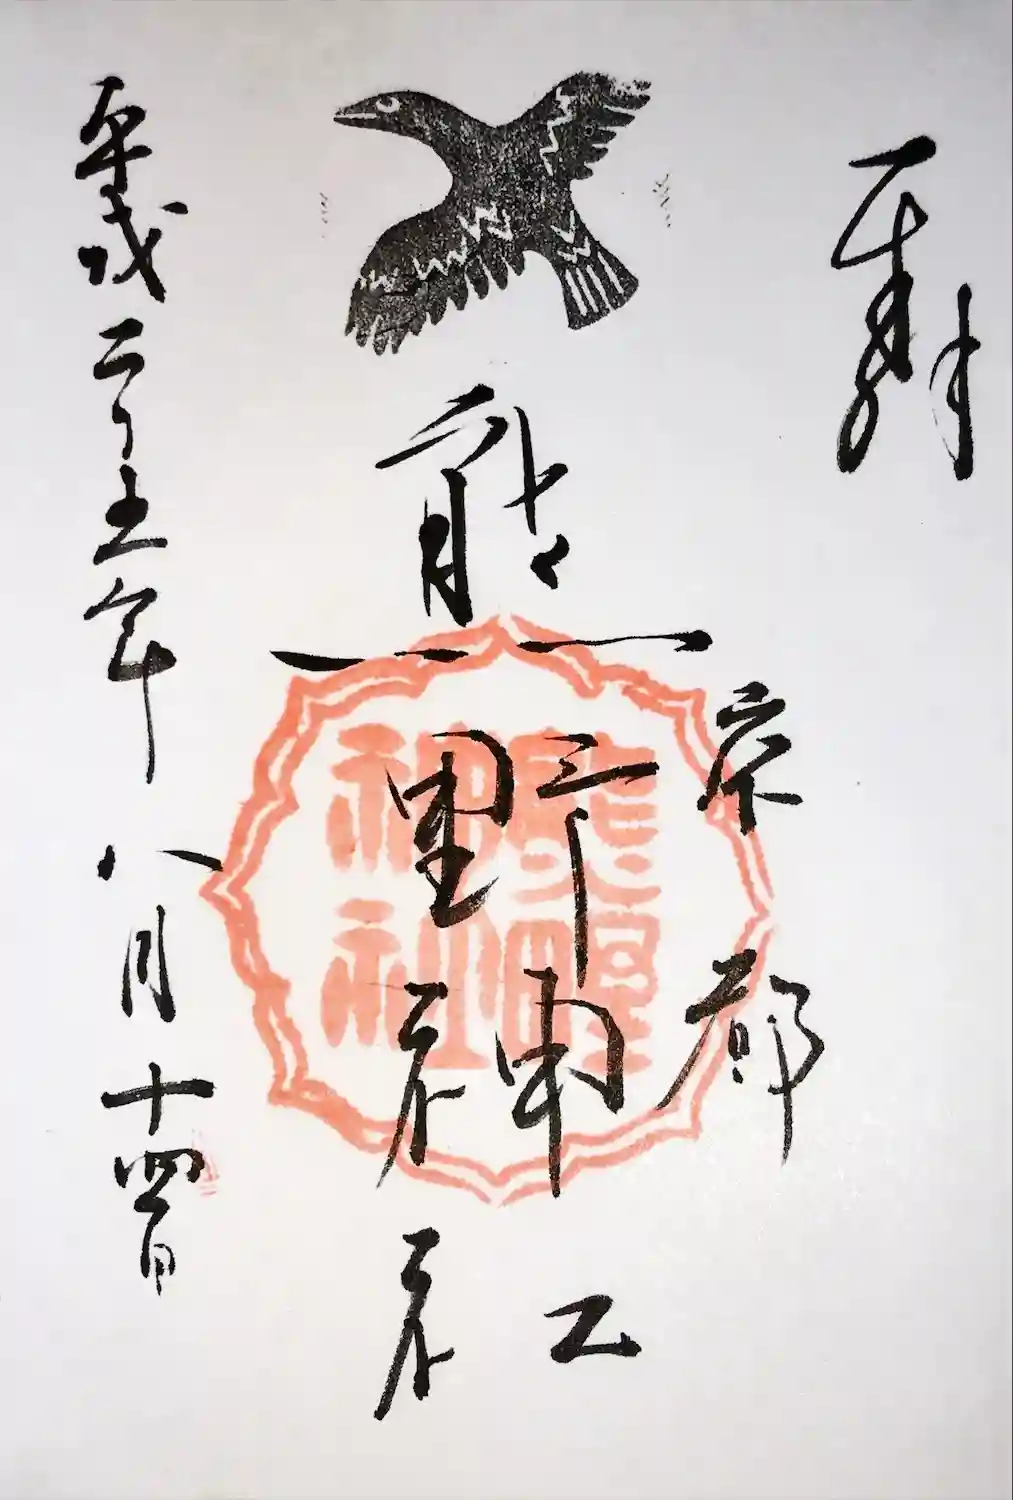 奉拝
京都
熊野神社
熊野神社
平成二十五年八月十四日